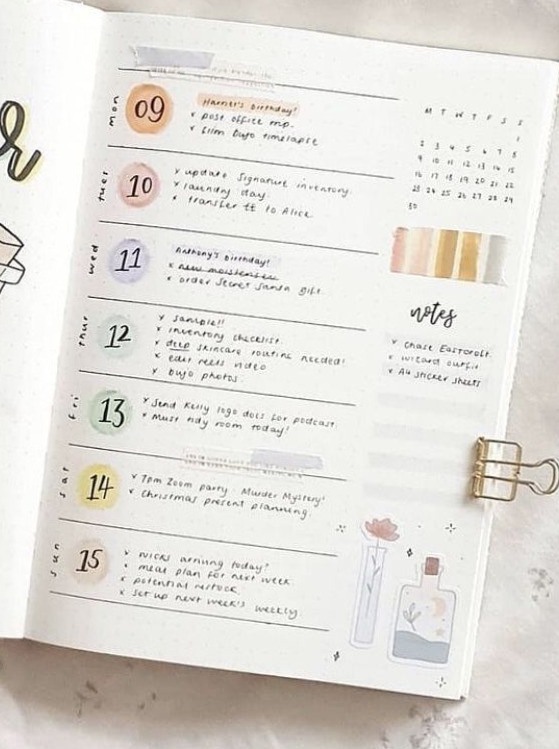 r
mon
09
Harrier's birthday!
x post office trip.
x film bujo timelapse
tues
10
x update signature inventory.
x laundry day.
x transfer ££ to Alice.
wed
11
Anthony's birthday!
x new moisteriser
x order secret santa gift.
thur
12
x sample!!
x inventory checklist.
x deep skincare routine needed!
x edit reels video
x bujo photos.
fri
13
x Send Kelly logo docs for podcast.
x Must tidy room today!
sat
14
x 7pm Zoom party - Murder Mystery!
x Christmas present planning.
sun
15
x arriving today!
x meal plan for next week.
x potential restock.
x set up next week's weekly.
M T W T F S S
1
2 3 4 5 6 7 8
9 10 11 12 13 14 15
16 17 18 19 20 21 22
23 24 25 26 27 28 29
30
notes
x chase Eastcroft.
x wizard outfit
x A4 sticker sheets